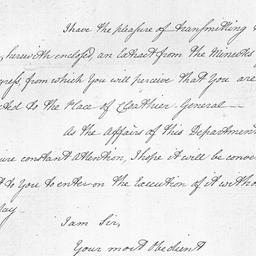 I have the pleasure of transmitting
herewith enclosed, an Extract from the Minutes
ress, from which You will perceive that You are
ted to the Place of Cloathier-General—
As the Affairs of this Department
ire constant attention, I hope it will be conve
t to You to enter on the Execution of it witho
lay.
I am Sir,
Your most Obedient